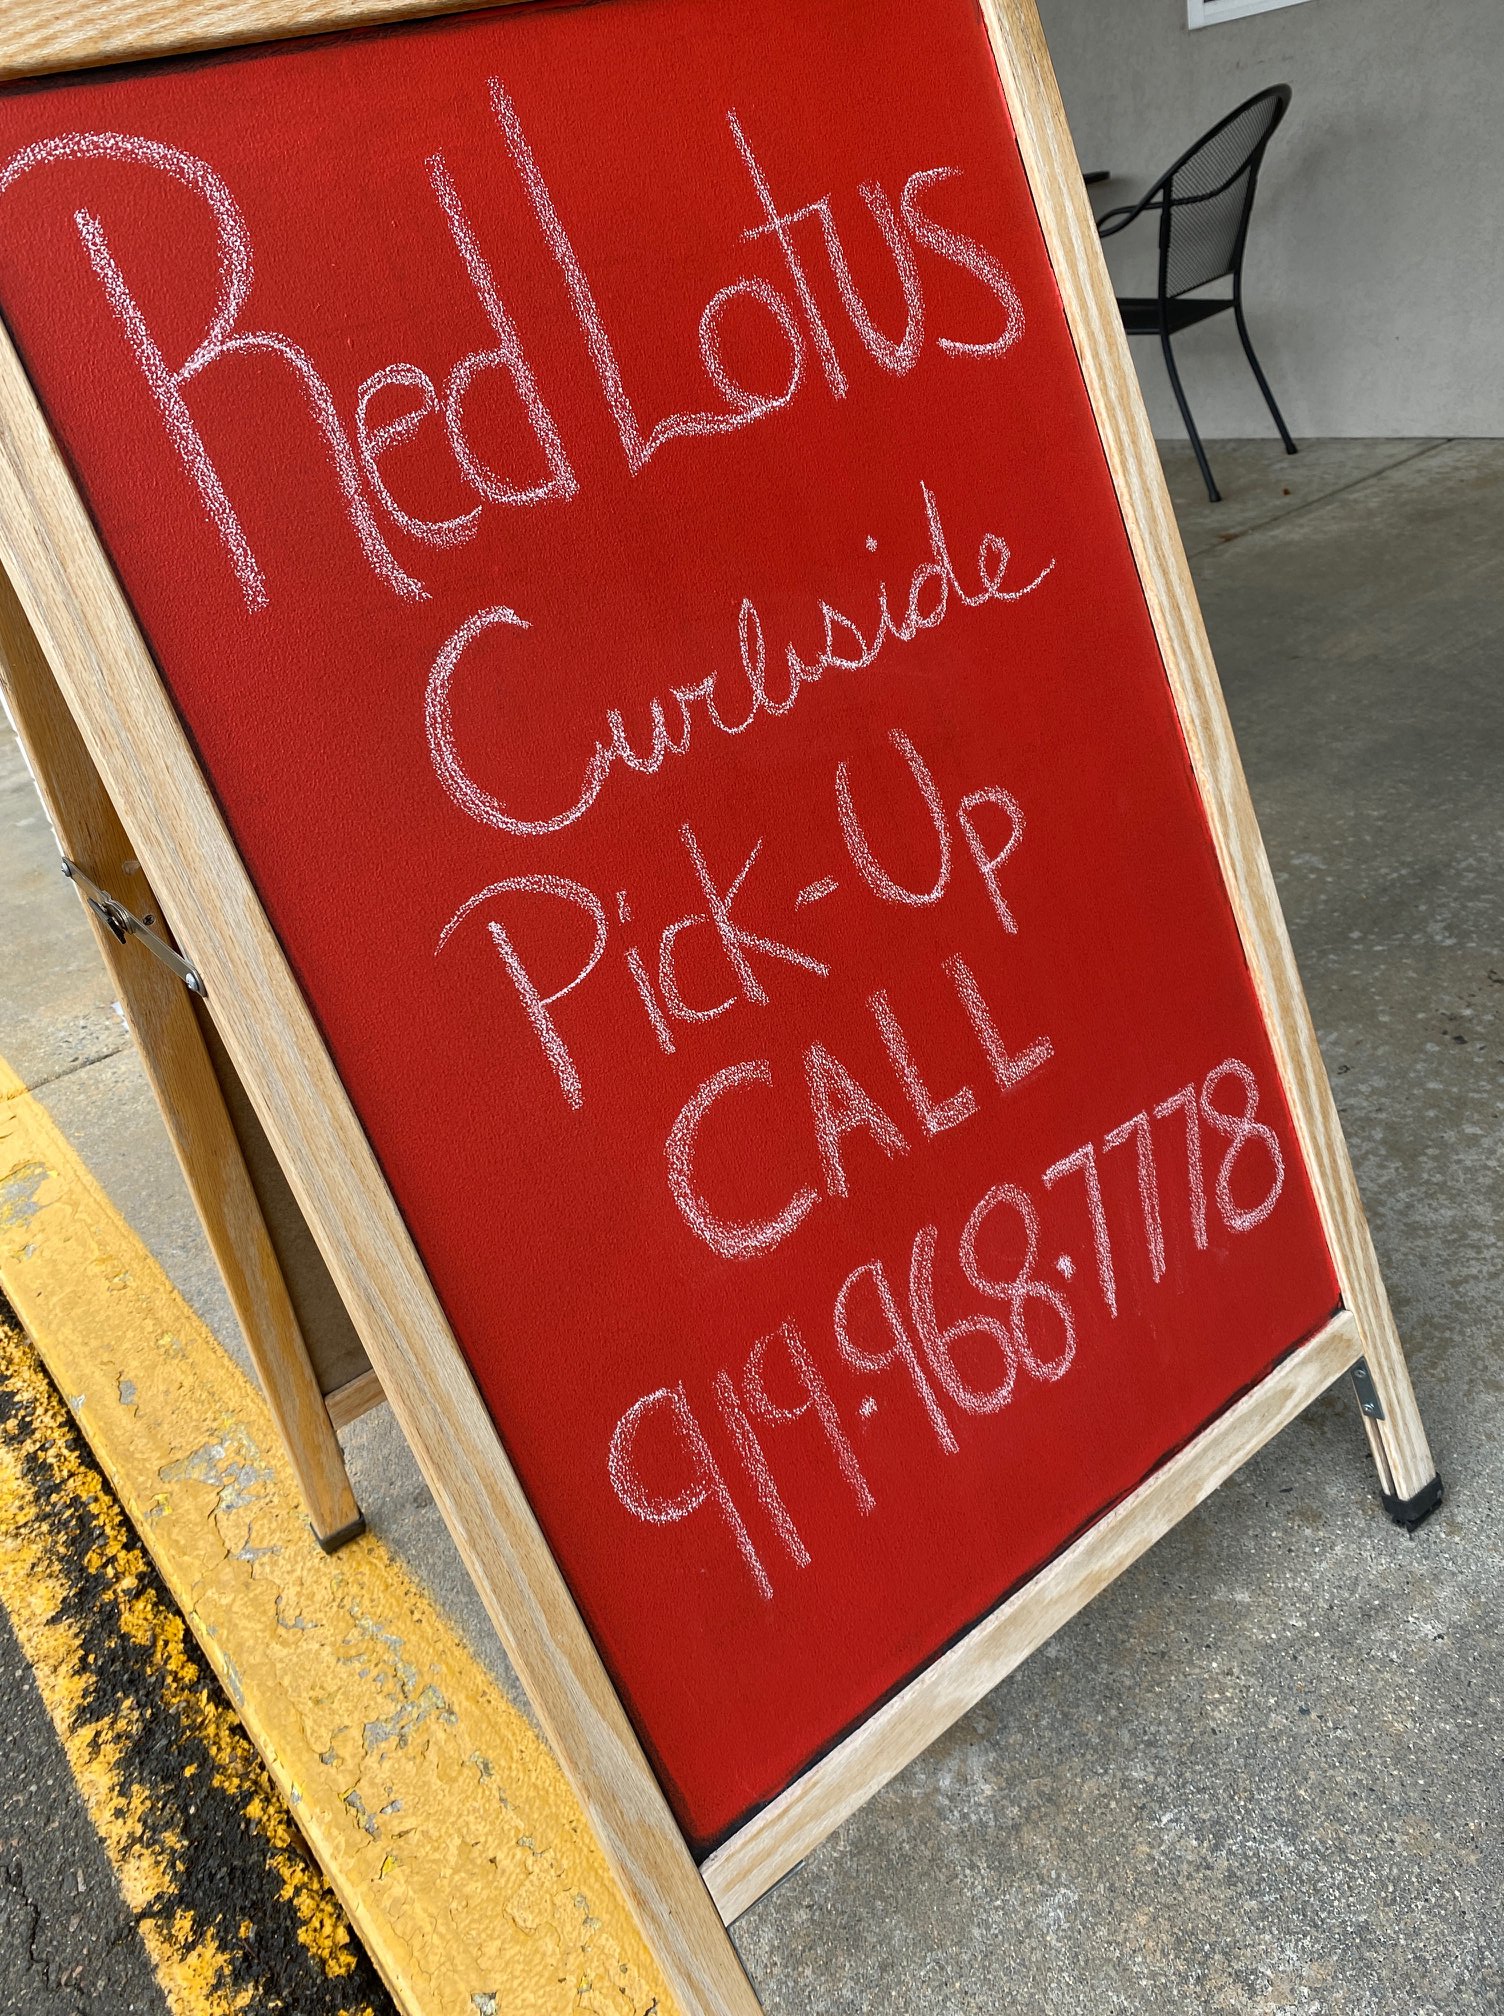 Red Lotus
Curbside
Pick-Up
CALL
919.968.7778